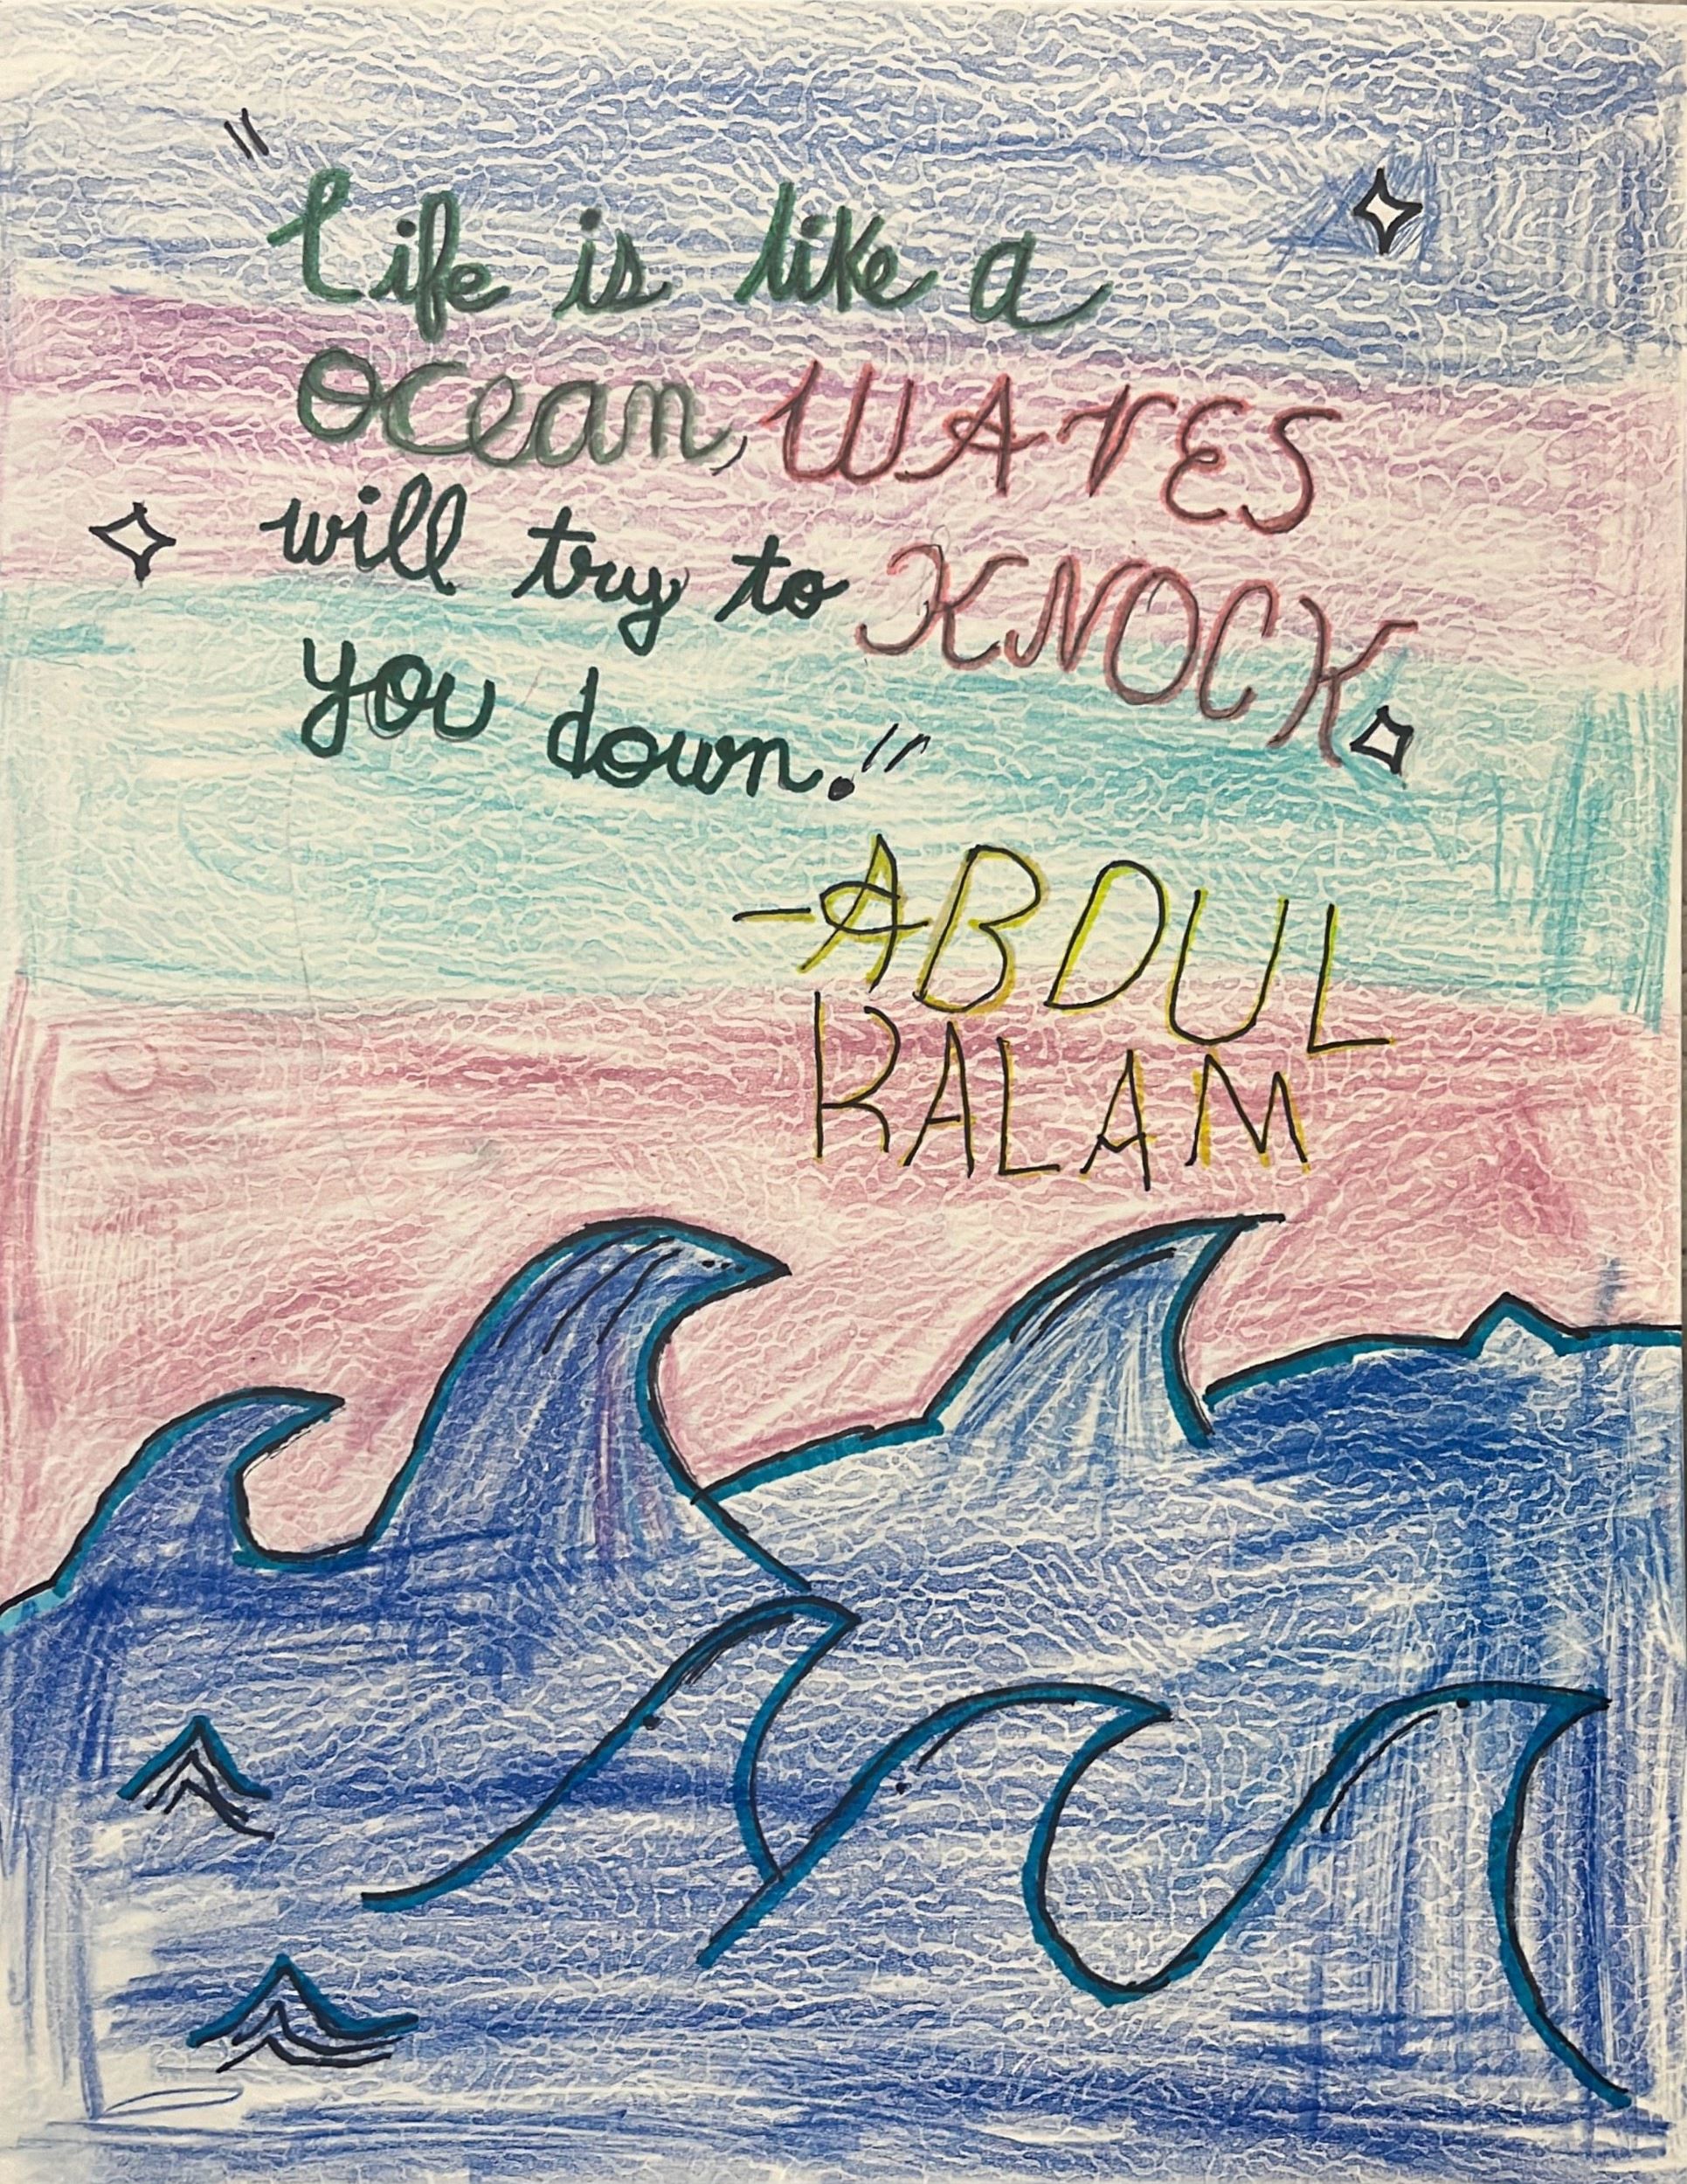 "Life is like a
ocean, WAVES
will try to KNOCK
you down."
-ABDUL
KALAM